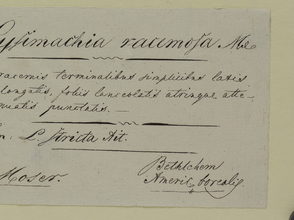 Lysimachia racemosa Me
racemis terminalibus simplicibus laxis
elongatis, foliis lanceolatis utrinque atte-
nuatis punctatis.—
L. stricta Ait.
Bethlehem
Moser. Americ. borealis